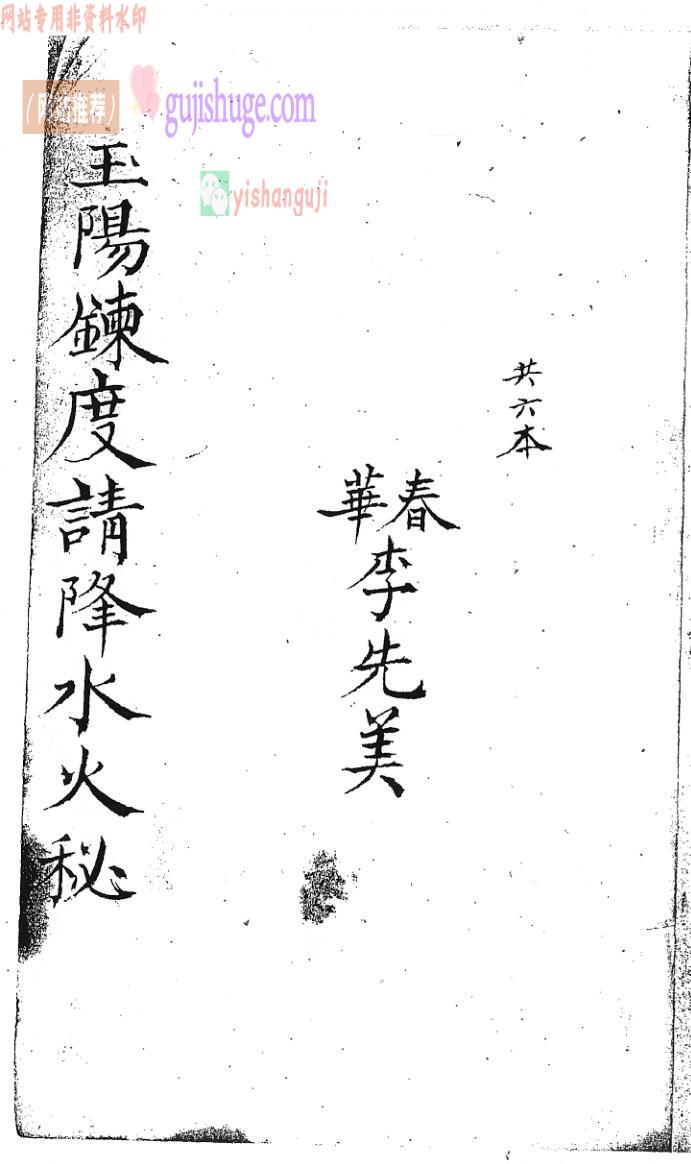 网站专用非资料水印
(网站推荐)
gujishuge.com
yishanguji
共六本
春華
李先美
玉陽鍊度請降水火秘